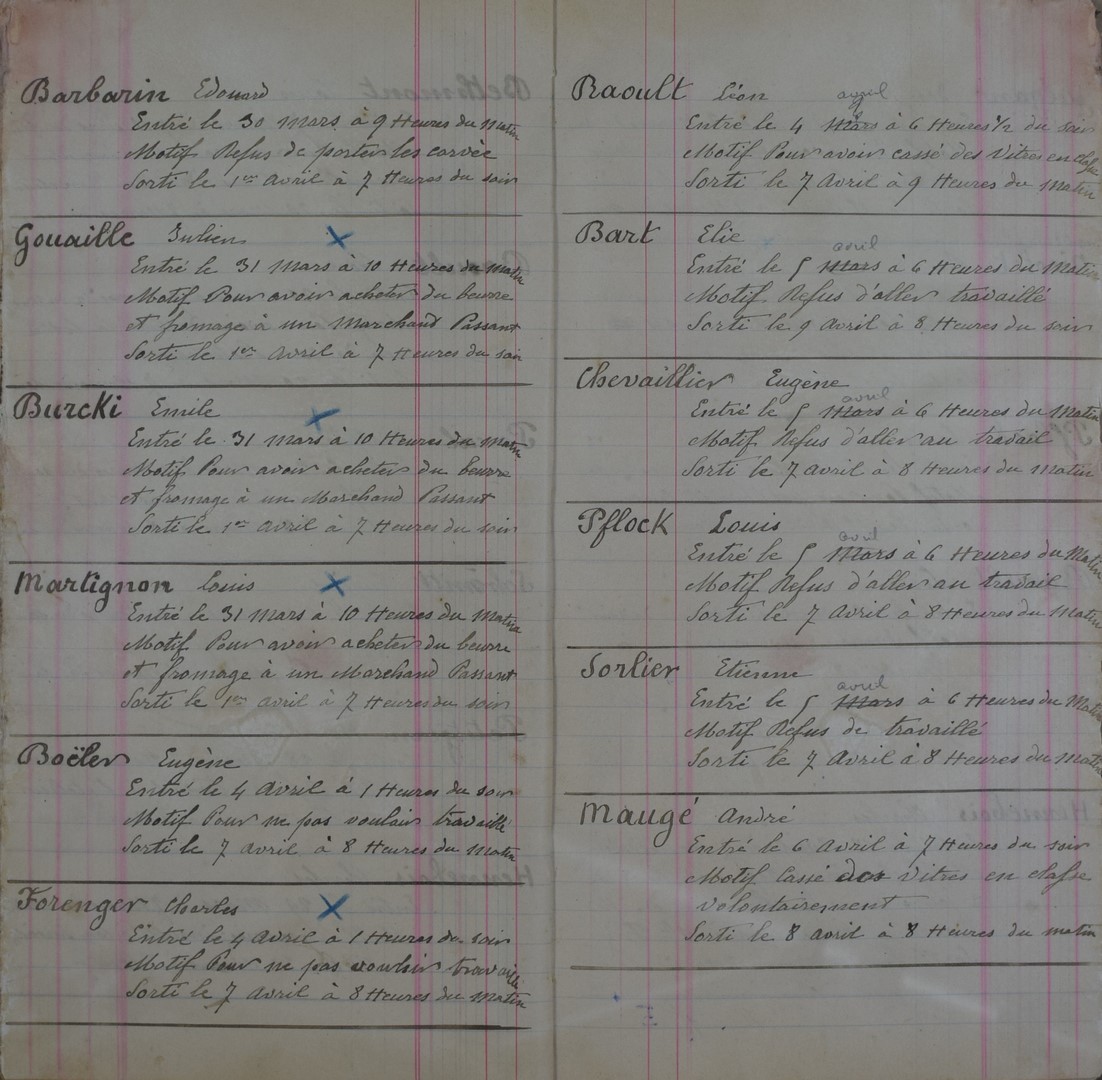 Barbarin Edouard
Entré le 30 mars à 9 Heures du matin
Motif Refus de porter les corvée
Sorti le 1er avril à 7 Heures du soir
Gouaille Julien
Entré le 31 Mars à 10 Heures du matin
Motif Pour avoir acheter du beurre
et fromage à un Marchand Passant
Sorti le 1er Avril à 7 Heures du soir
Burcki Emile
Entré le 31 mars à 10 Heures du matin
Motif Pour avoir acheter du beurre
et fromage à un Marchand Passant
Sorti le 1er avril à 7 Heures du soir
Martignon Louis
Entré le 31 Mars à 10 Heures du Matin
Motif Pour avoir acheter du beurre
et fromage à un Marchand Passant
Sorti le 1er avril à 7 Heures du soir
Boëler Eugène
Entré le 4 Avril à 1 Heures du soir
Motif Pour ne pas vouloir travaillé
Sorti le 7 avril à 8 Heures du Matin
Forenger Charles
Entré le 4 Avril à 1 Heures du soir
Motif Pour ne pas vouloir travaillé
Sorti le 7 Avril à 8 Heures du Matin
Raoult Léon
avril
Entré le 4 Mars à 6 Heures 1/2 du soir
Motif Pour avoir cassé des Vitres en classe
Sorti le 7 Avril à 9 Heures du Matin
Bart Elie
avril
Entré le 5 Mars à 6 Heures du Matin
Motif Refus d'aller travaillé
Sorti le 9 Avril à 8 Heures du soir
Chevaillier Eugène
avril
Entré le 5 Mars à 6 Heures du Matin
Motif Refus d'aller au travail
Sorti le 7 avril à 8 Heures du matin
Pflock Louis
avril
Entré le 5 Mars à 6 Heures du Matin
Motif Refus d'aller au travail
Sorti le 7 Avril à 8 Heures du Matin
Sorlier Etienne
avril
Entré le 5 Mars à 6 Heures du Matin
Motif Refus de travaillé
Sorti le 7 Avril à 8 Heures du Matin
Maugé André
Entré le 6 Avril à 7 Heures du soir
Motif Cassé des Vitres en classe
volontairement
Sorti le 8 avril à 8 Heures du matin